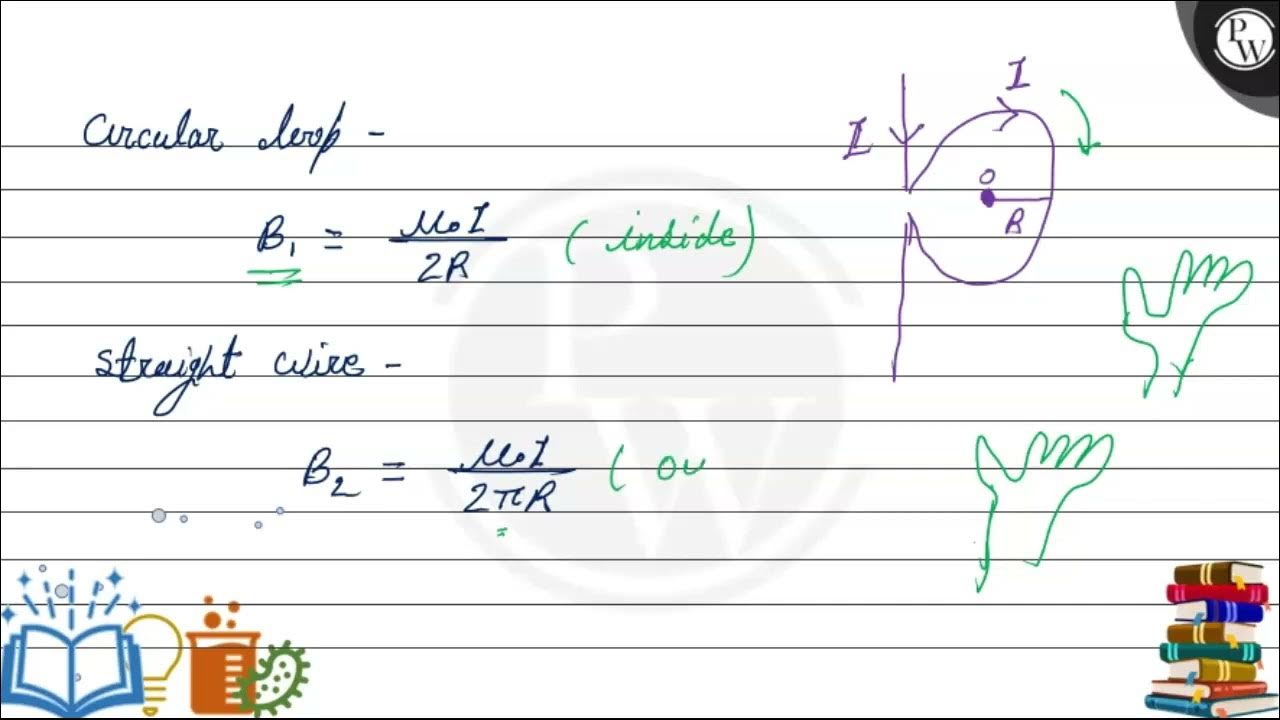 Circular loop -
B₁ = μ₀I / 2R (inside)
straight wire -
B₂ = μ₀I / 2πR ( ou
I
I
O
R
PW
PW